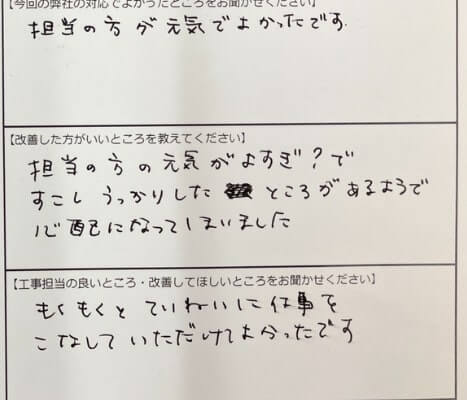 【今回の弊社の対応でよかったところをお聞かせください】
担当の方が元気でよかったです.
【改善した方がいいところを教えてください】
担当の方の元気がよすぎ?で
すこしうっかりした ところがあるようで
心配になってしまいました
【工事担当の良いところ・改善してほしいところをお聞かせください】
もくもくとていねいに仕事を
こなしていただけてよかったです